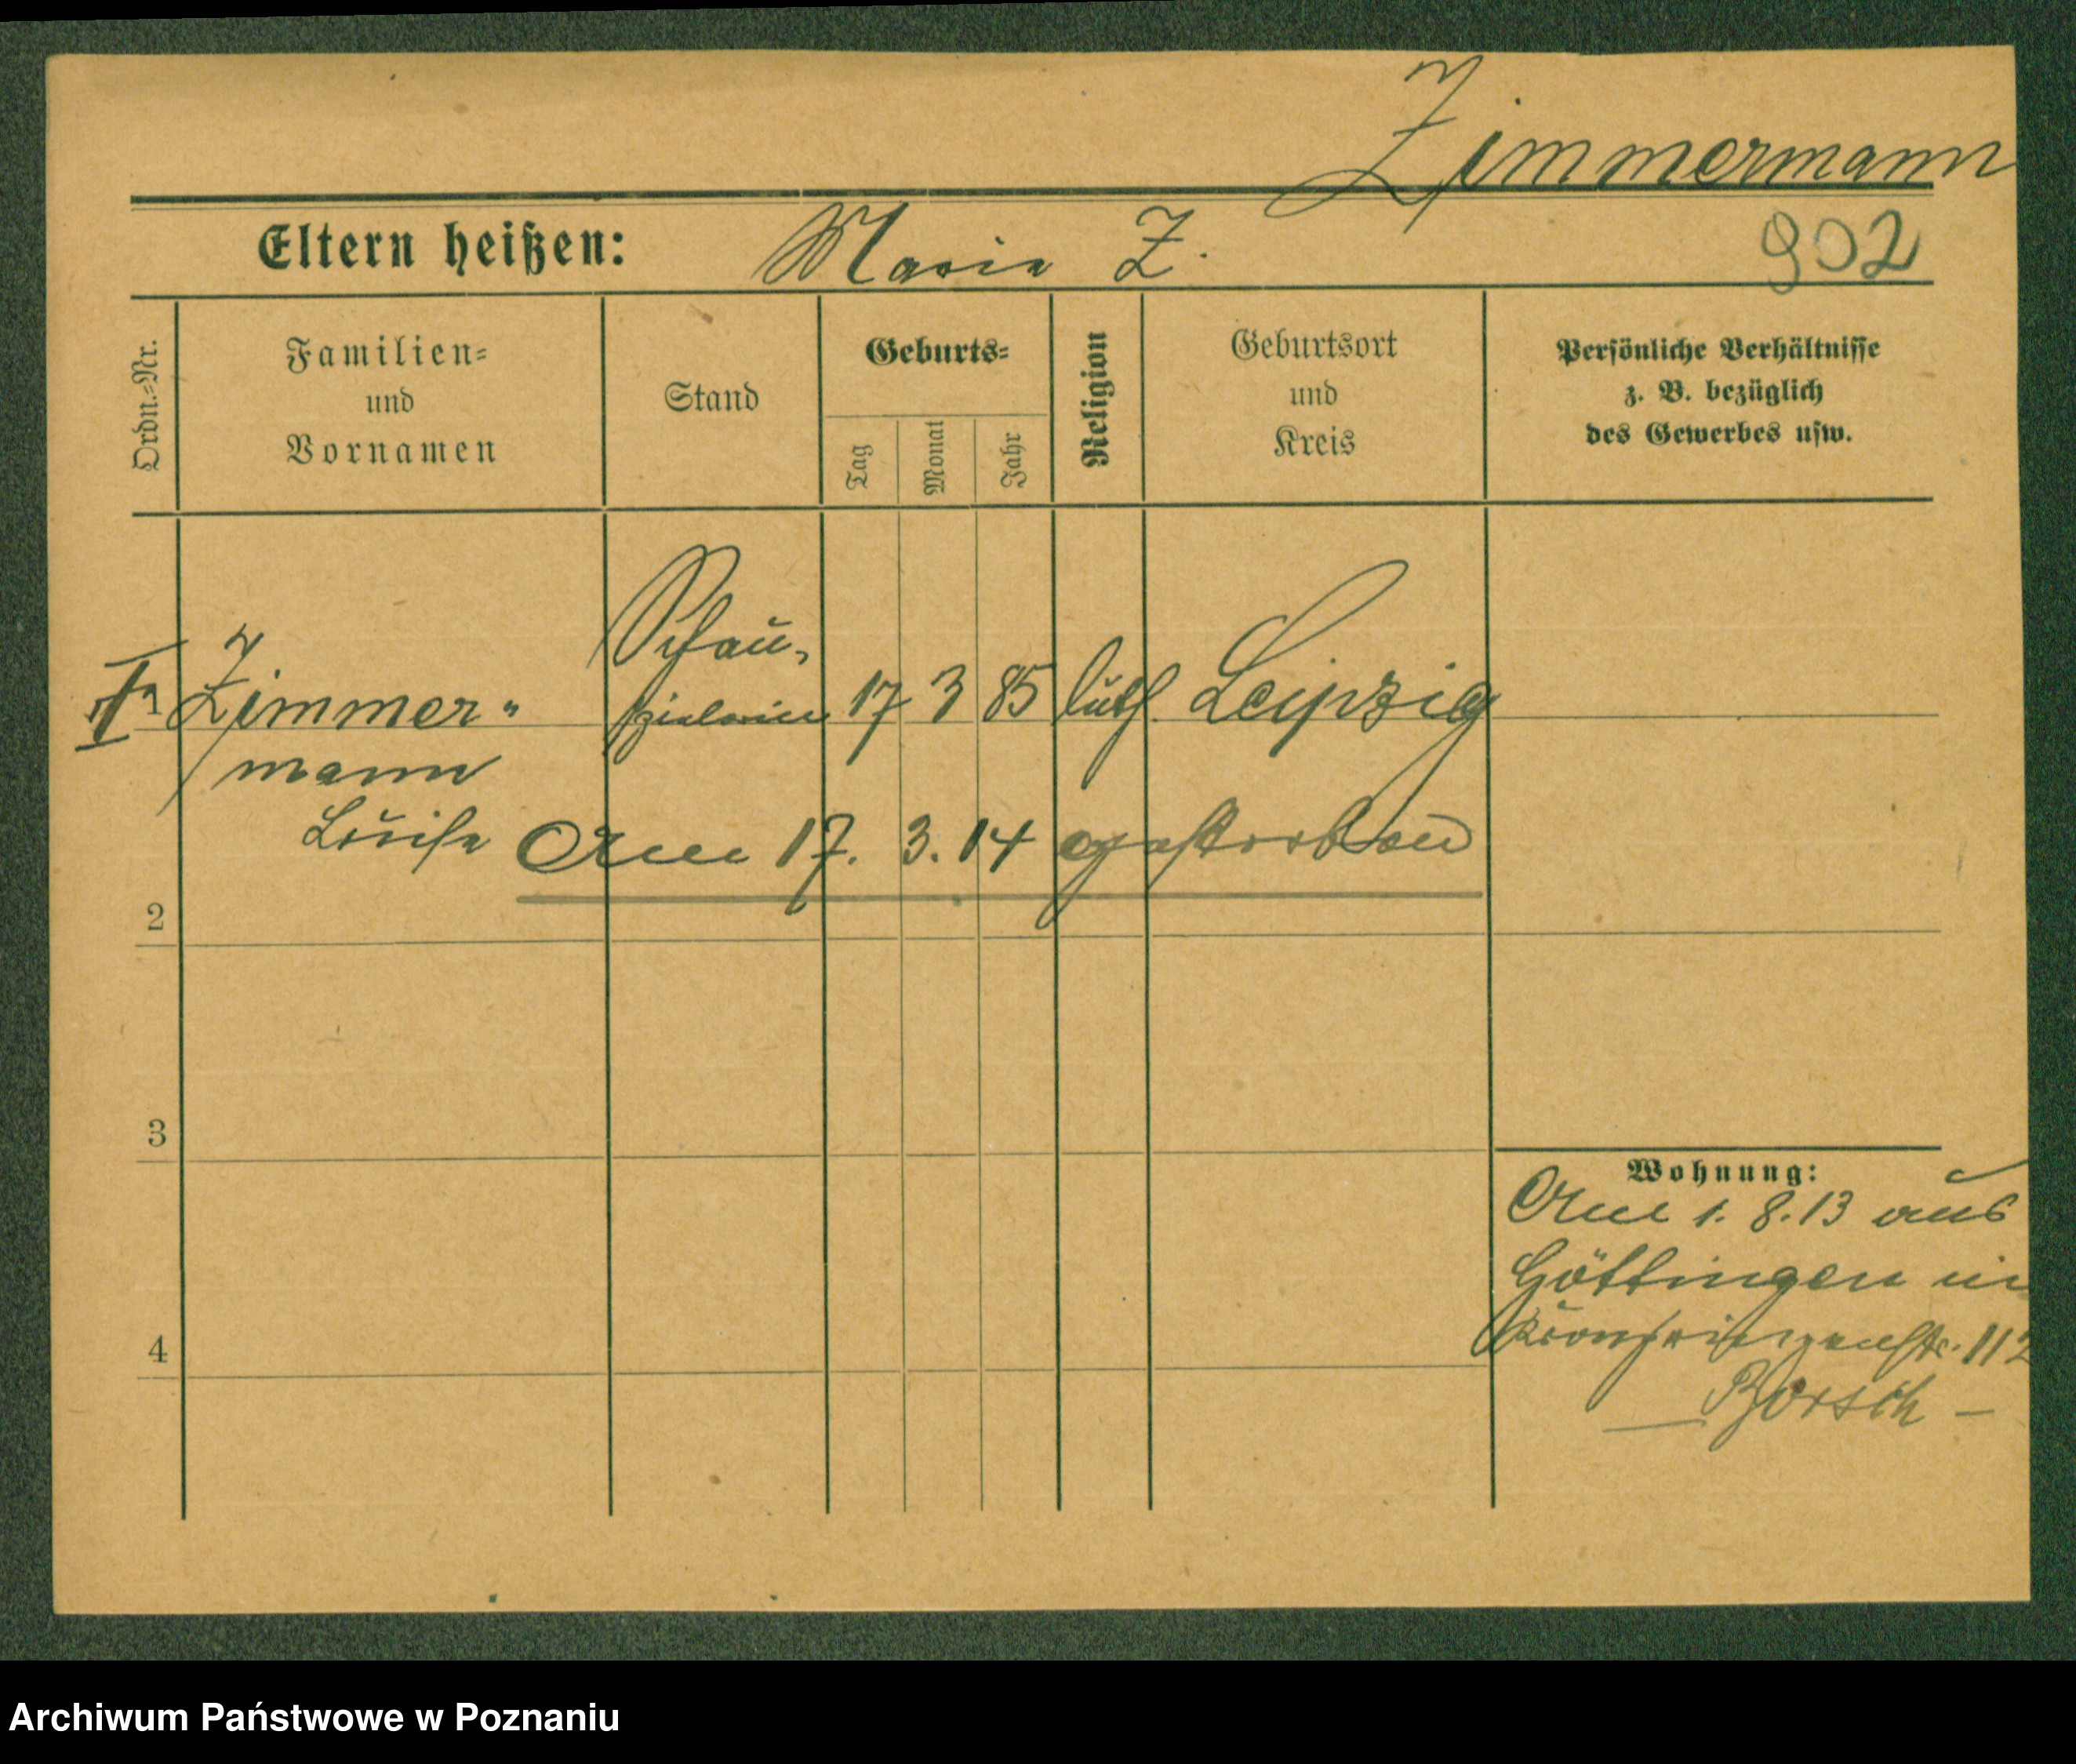 Zimmermann
Eltern heißen: Maria Z.
902
Ordn.=Nr.
Familien=
und
Vornamen
Stand
Geburts=
Tag
Monat
Jahr
Religion
Geburtsort
und
Kreis
Persönliche Verhältnisse
z. B. bezüglich
des Gewerbes usw.
I Zimmer-
mann
Luise
Schau-
spielerin
17 3 85 luth. Leipzig
Am 17. 3. 14 gestorben
2
3
4
Wohnung:
Am 1. 8. 13 aus
Göttingen in
Kronprinzenstr. 112
— Borsch —
Archiwum Państwowe w Poznaniu